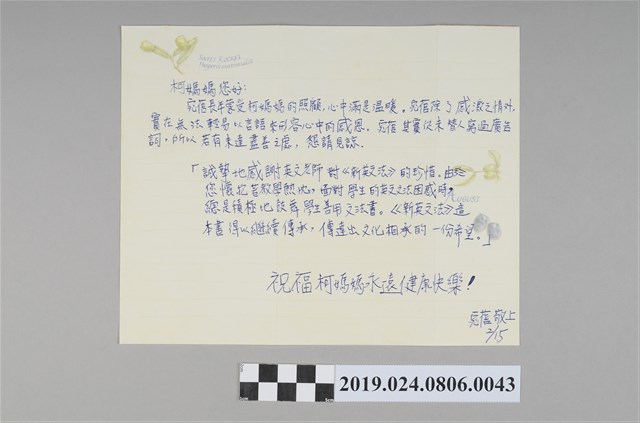 柯媽媽您好:
宛蓓長年蒙受柯媽媽的照顧,心中滿是溫暖。宛蓓除了感激之情外,
實在無法輕易以言語來形容心中的感恩。宛蓓其實從未替人寫過廣告
詞,所以若有未達盡善之處,懇請見諒。
「誠摯地感謝英文老師對《新英文法》的珍惜。由於
您懷抱著教學熱忱,面對學生的英文文法困惑時,
總是積極地鼓舞學生善用文法書。《新英文法》這
本書得以繼續傳承,傳達出文化相承的一份希望。」
祝福柯媽媽永遠健康快樂!
宛蓓敬上
2/15
AUGUST
2019.024.0806.0043